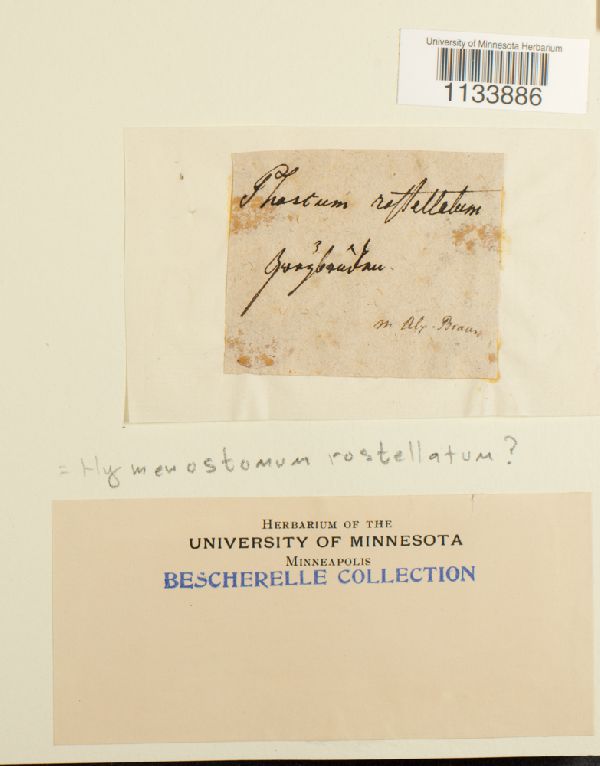 University of Minnesota Herbarium
1133886
Phascum rostellatum
Zweybrücken.
Al. Braun
= Hymenostomum rostellatum?
HERBARIUM OF THE
UNIVERSITY OF MINNESOTA
MINNEAPOLIS
BESCHERELLE COLLECTION